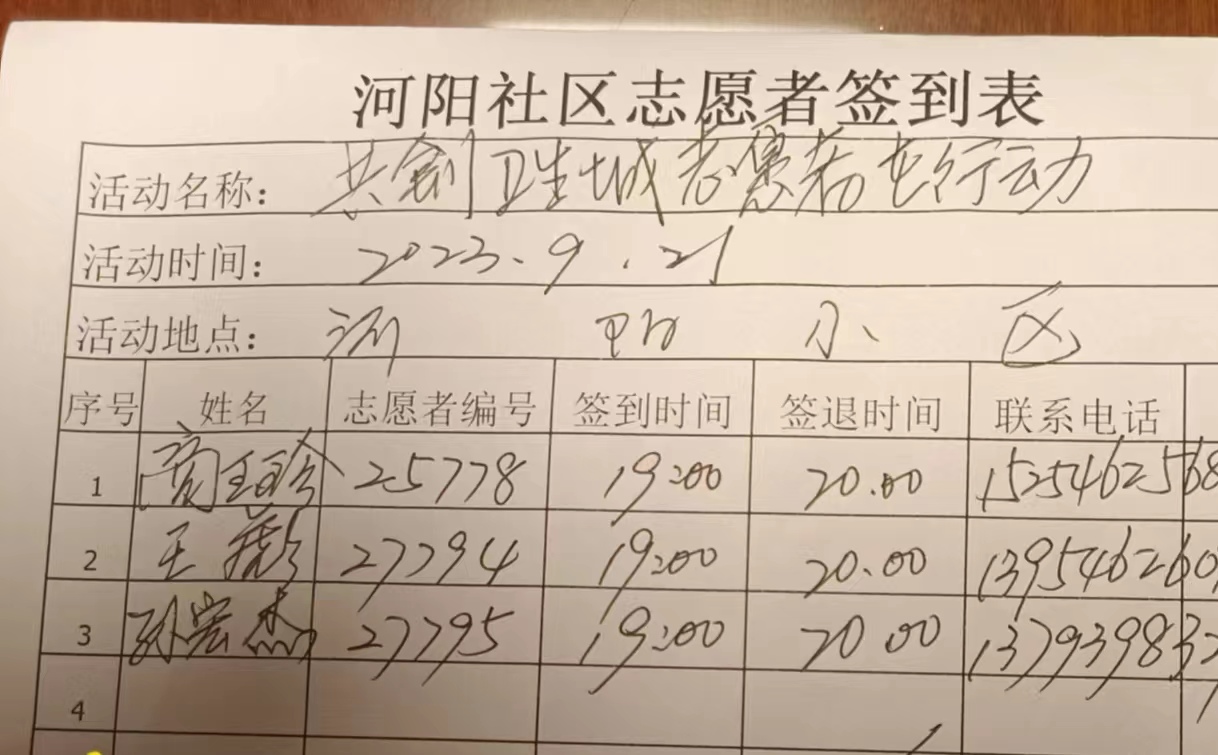 河阳社区志愿者签到表
活动名称: 共创卫生城志愿者在行动
活动时间: 2023.9.21
活动地点: 河阳小区
序号 姓名 志愿者编号 签到时间 签退时间 联系电话
1 25778 19:00 20.00 15254625568
2 王 27794 19:00 20.00 1395462660
3 孙宏杰 27795 19:00 20 00 137939832
4